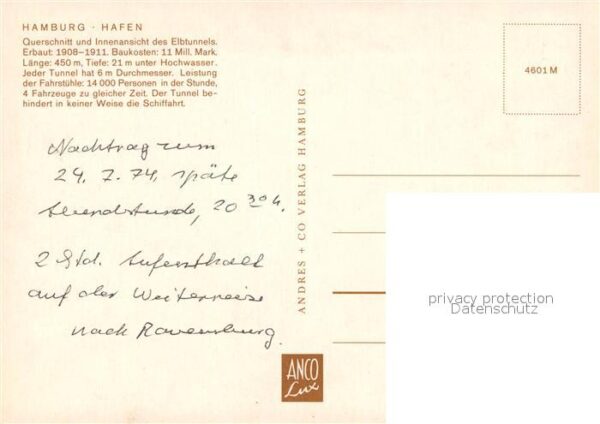 HAMBURG · HAFEN
Querschnitt und Innenansicht des Elbtunnels.
Erbaut: 1908–1911. Baukosten: 11 Mill. Mark.
Länge: 450 m, Tiefe: 21 m unter Hochwasser.
Jeder Tunnel hat 6 m Durchmesser. Leistung
der Fahrstühle: 14 000 Personen in der Stunde,
4 Fahrzeuge zu gleicher Zeit. Der Tunnel be-
hindert in keiner Weise die Schiffahrt.
Nachtrag zum
24. 7. 74, späte
Abendstunde, 20 30 h.
2 Std. Aufenthalt
auf der Weiterreise
nach Ravensburg.
ANDRES + CO VERLAG HAMBURG
ANCO
Lux
4601 M
privacy protection
Datenschutz